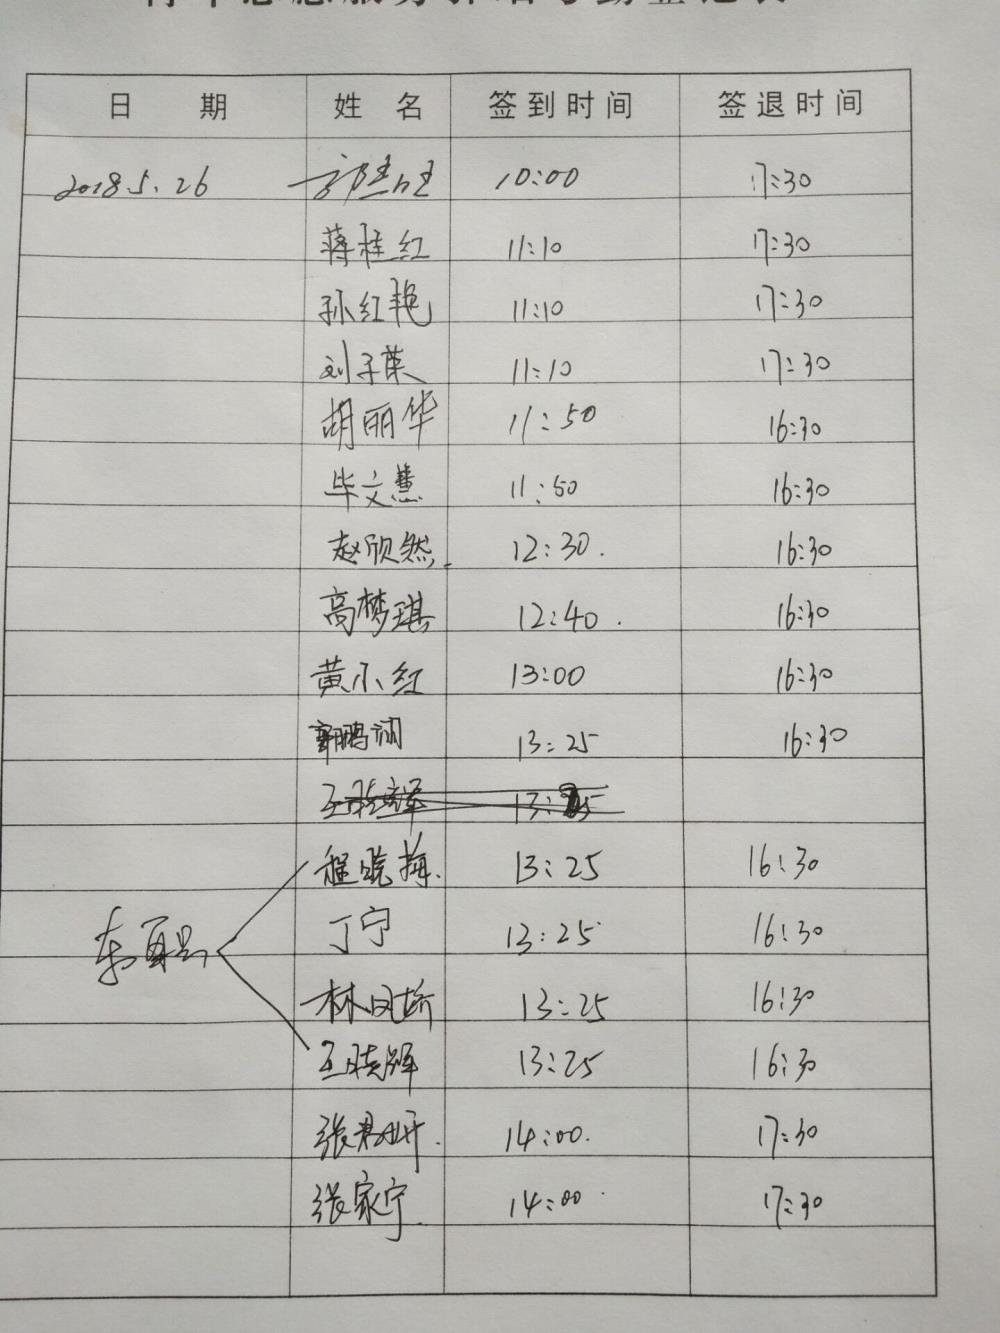 日 期 姓 名 签到时间 签退时间
2018.5.26 10:00 17:30
蒋桂红 11:10 17:30
孙红艳 11:10 17:30
刘子英 11:10 17:30
胡丽华 11:50 16:30
毕文慧 11:50 16:30
赵欣然 12:30. 16:30
高梦琪 12:40. 16:30
黄小红 13:00 16:30
郭鹏润 13:25 16:30
程晓梅. 13:25 16:30
丁宁 13:25 16:30
林凤娇 13:25 16:30
王晓辉 13:25 16:30
张君妍. 14:00. 17:30
张家宁. 14:00 17:30